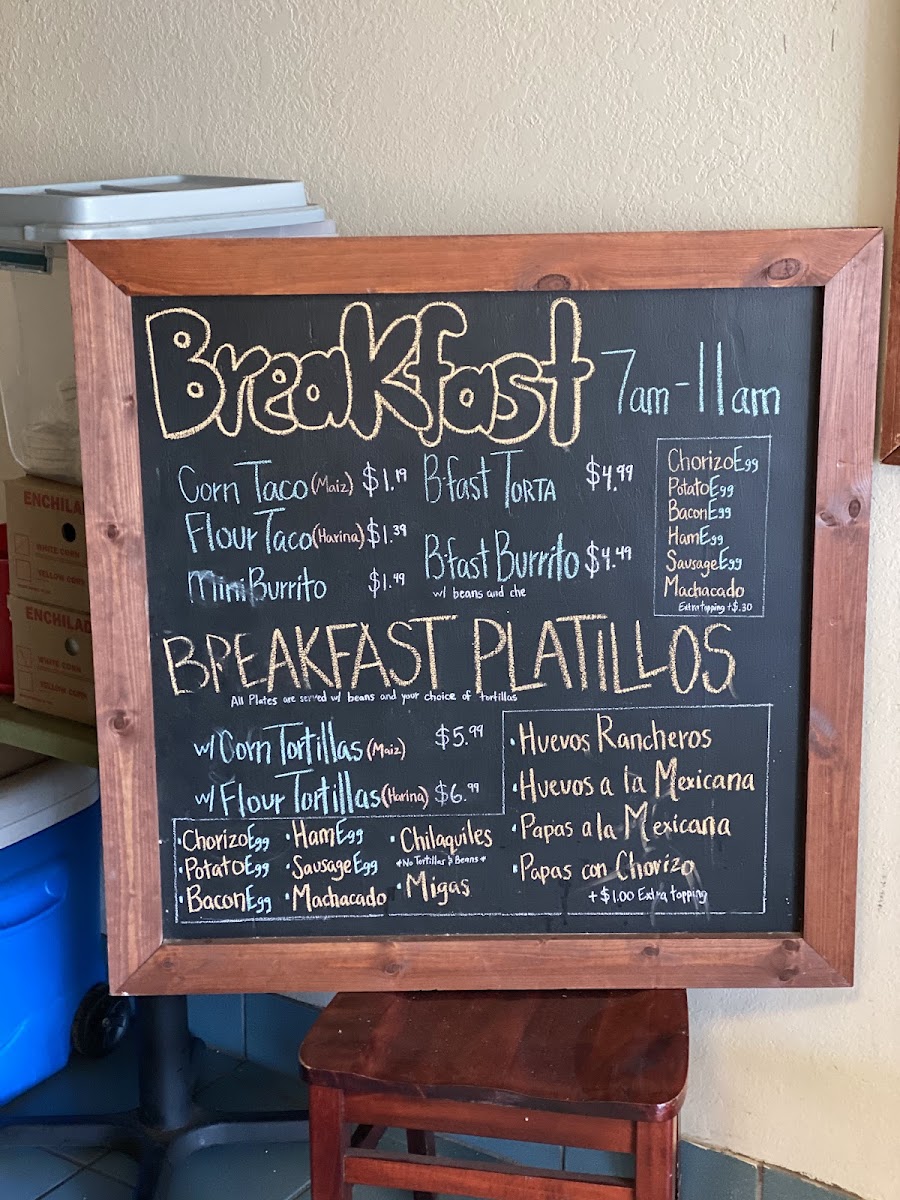 Breakfast 7am-11am
Corn Taco (Maiz) $1.19
Flour Taco (Harina) $1.39
Mini Burrito $1.49
B·fast Torta $4.99
B·fast Burrito $4.49
w/ beans and che
ChorizoEgg
PotatoEgg
BaconEgg
HamEgg
SausageEgg
Machacado
Extra topping +$.30
BREAKFAST PLATILLOS
All Plates are served w/ beans and your choice of tortillas
w/ Corn Tortillas (Maiz) $5.99
w/ Flour Tortillas (Harina) $6.99
·ChorizoEgg
·PotatoEgg
·BaconEgg
·HamEgg
·SausageEgg
·Machacado
·Chilaquiles
*No Tortillas & Beans*
·Migas
·Huevos Rancheros
·Huevos a la Mexicana
·Papas a la Mexicana
·Papas con Chorizo
+$1.00 Extra topping
ENCHILAD
WHITE CORN
YELLOW CORN
ENCHILAD
WHITE CORN
YELLOW CORN